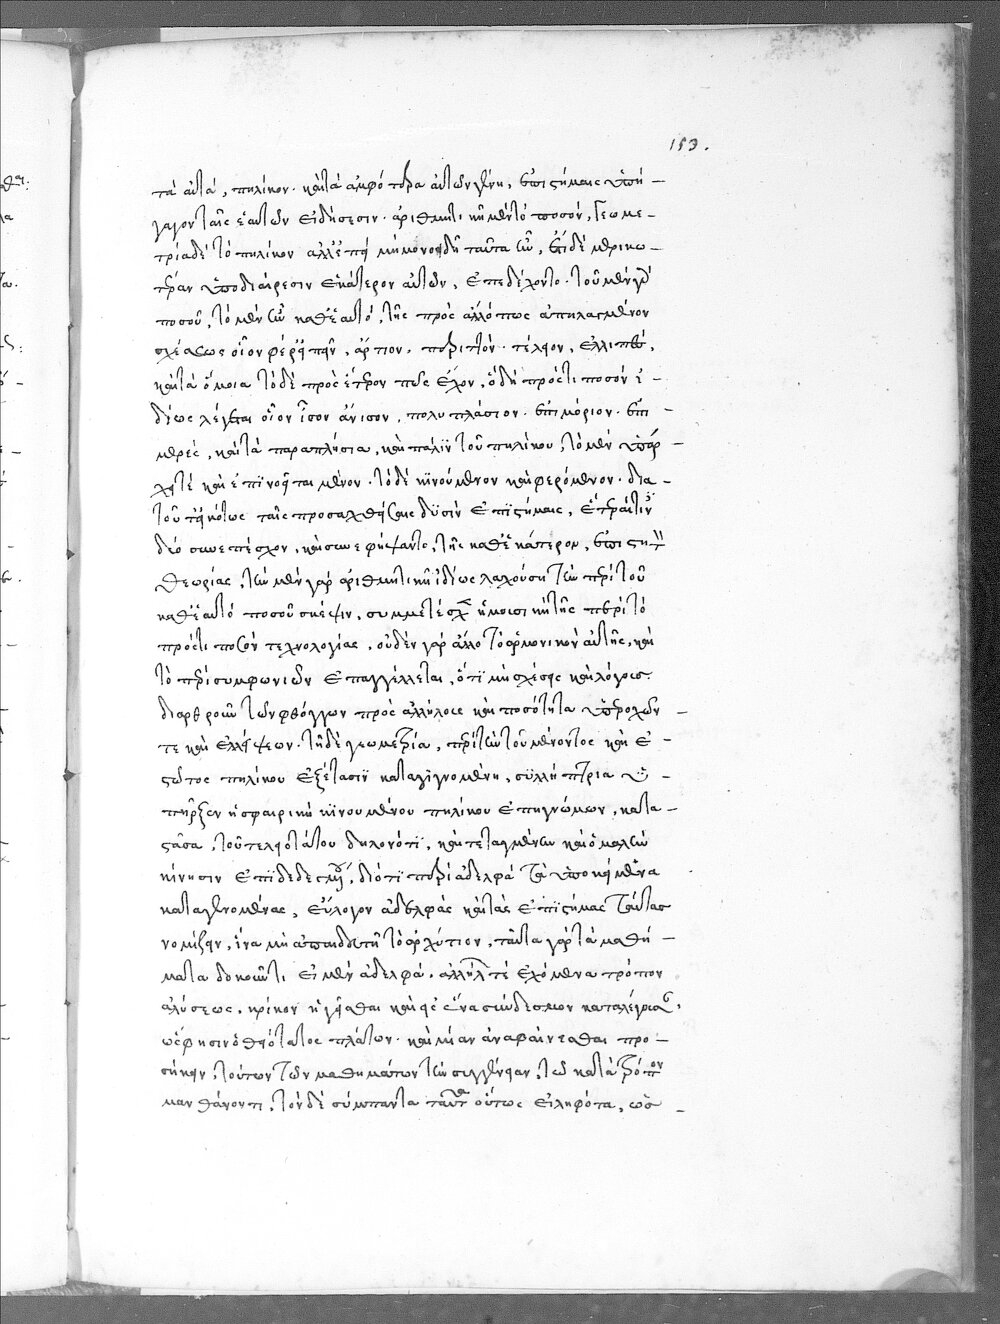 153.
τὰ αὐτά, πηλίκον. καὶ τὰ ἀμφότερα αὐτῶν γένη, ἐπιστήμαις ὑπή-
γαγον ταῖς ἑαυτῶν εἰδήσεσιν. ἀριθμητικῇ μὲν τὸ ποσόν, γεωμε-
τρία δὲ τὸ πηλίκον ἀλλ' ἐπεὶ μὴ μονοειδῆ ταῦτα ὦν, ἐπὶ δὲ μερικω-
τέραν ὑποδιαίρεσιν ἑκάτερον αὐτῶν, ἐπεδέχοντο. τοῦ μὲν γὰρ
ποσοῦ, τὸ μὲν ὦν καθ' ἑαυτό, τῆς πρὸς ἄλλό πως ἀπηλαγμένον
σχέσεως οἷον φέρ' εἰπεῖν, ἄρτιον, περιττόν. τέλειον, ἐλλιπές,
καὶ τὰ ὅμοια τὸ δὲ πρὸς ἕτερον πῶς ἔχον, ὃ δὴ πρός τι ποσόν ἰ-
δίως λέγεται οἷον ἴσον ἄνισον, πολυπλάσιον. ἐπιμόριον. ἐπι-
μερές, καὶ τὰ παραπλήσια, καὶ πάλιν τοῦ πηλίκου, τὸ μὲν ὑπάρ-
χει τε καὶ ἐπινοεῖται μένον. τὸ δὲ κινούμενον καὶ φερόμενον. δια-
τοῦτ' εἰκότως ταῖς προσαχθείσαις δυσὶν ἐπιστήμαις, ἕτεραί τινες
δύο συνεπέσχον, καὶ συνεφήψαντο, τῆς καθ' ἑκάτερον, ἐπιστητὸν
θεωρίας, τῶν μὲν γὰρ ἀριθμητικῇ ἰδίως λαχούσῃ τῶν περὶ τοῦ
καθ' ἑαυτό ποσοῦ σκέψιν, συμμετέσχεν ἡ μουσικὴ τῆς περὶ τὸ
πρός τι ποσὸν τεχνολογίας, οὐδὲν γὰρ ἄλλο τὸ ἁρμονικὸν αὐτῆς, καὶ
τὸ περὶ συμφωνιῶν ἐπαγγέλλεται, ὅτι μὴ σχέσεις καὶ λόγους
διαρθροῦν τῶν φθόγγων πρὸς ἀλλήλους καὶ ποσότητα ὑπεροχῶν-
τε καὶ ἐλλείψεων. τῇ δὲ γεωμετρία, περὶ τὼν τοῦ μένοντος καὶ ἑ-
στῶτος πηλίκου ἐξέτασιν καταγιγνομένη, συλλήπτρια ὑ-
πῆρξεν ἡ σφαιρικὴ κινουμένου πηλίκου ἐπηγνώμων, κατα-
στᾶσα, τοῦ τελειοτάτου δηλονότι, καὶ τεταγμένων καὶ ὁμαλὼν
κίνησιν ἐπιδεδεγμένου, διότι περὶ ἀδελφά τὰ ὑποκείμενα
καταγινομένας, εὔλογον ἀδελφὰς καὶ τὰς ἐπιστήμας ταύτας
νομίζειν, ἵνα μὴ ἀπαιδευτῇ τὸ ἀρχύτιον, ταῦτα γὰρ τὰ μαθή-
ματα δοκοῦντι εἰμὲν ἀδελφά. ἀλλήλων τέ ἐχόμενα τρόπον
ἁλύσεως. κρίκον ἡγεῖσθαι καὶ εἰς ἕνα σύνδεσμον καταλήγειν,
ὥς φησιν ὁ θειότατος πλάτων. καὶ μίαν ἀναφαίνεσθαι προ-
σήκειν, τούτων τῶν μαθημάτων τὼν συγγένειαν, τῷ κατὰ τρόπον
μανθάνοντι, τὸν δὲ σύμπαντα ταῦτα οὕτως εἰληφότα, ὡς-